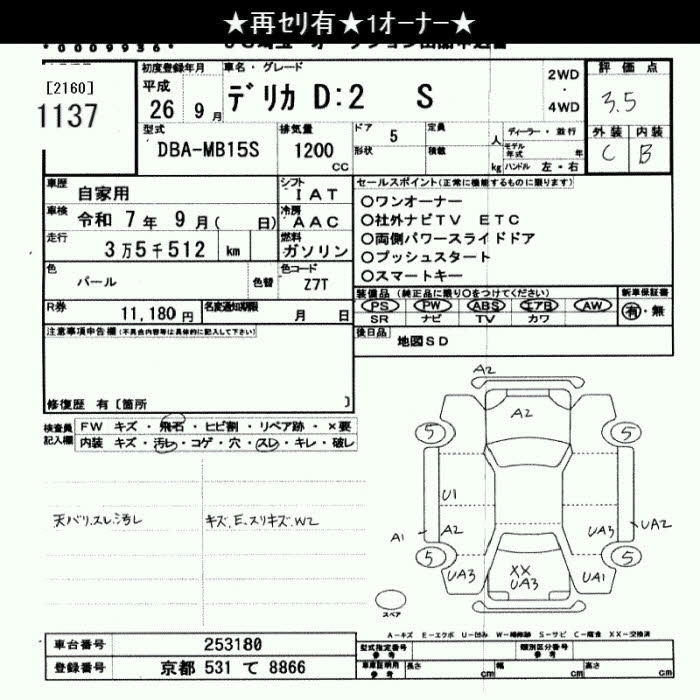 ★再セリ有★1オーナー★
[2160]
1137
初度登録年月
平成
26 9月
車名・グレード
デリカ D:2 S
2WD
・
4WD
評価点
3.5
外装 内装
C B
型式
DBA-MB15S
排気量
1200
CC
ドア 5
形状
定員
人
積載
kg
ディーラー・並行
モデル年式 年
ハンドル 左・右
車歴 自家用
シフト IAT
車検 令和 7年 9月( 日)
冷房 AAC
走行 3万5千512 km
燃料 ガソリン
色 パール
色替
色コード Z7T
R券 11,180円
名変通知期限 月 日
セールスポイント(正常に機能するものに限ります)
○ワンオーナー
○社外ナビTV ETC
○両側パワースライドドア
○プッシュスタート
○スマートキー
装備品(純正品に限り○をつけてください)
新車保証書
PS PW ABS エアB AW
SR ナビ TV カワ
有・無
後日品 地図SD
注意事項申告欄(不具合内容等は具体的に記入して下さい)
修復歴 有[箇所 ]
検査員記入欄
FW キズ・飛石・ヒビ割・リペア跡・×要
内装 キズ・汚レ・コゲ・穴・スレ・キレ・破レ
天バリ.スレ.汚レ
キズ.E.スリキズ.W2
A2
A2
5
5
U1
A1
A2
UA3
UA2
5
5
UA3
XX
UA3
UA1
スペア
A-キズ E-エクボ U-凹み W-補修跡 S-サビ C-腐食 XX-交換済
車台番号 253180
登録番号 京都 531 て 8866
型式指定番号
参考
類別区分番号
参考
車庫証明用
参考
長さ cm
幅 cm
高さ cm